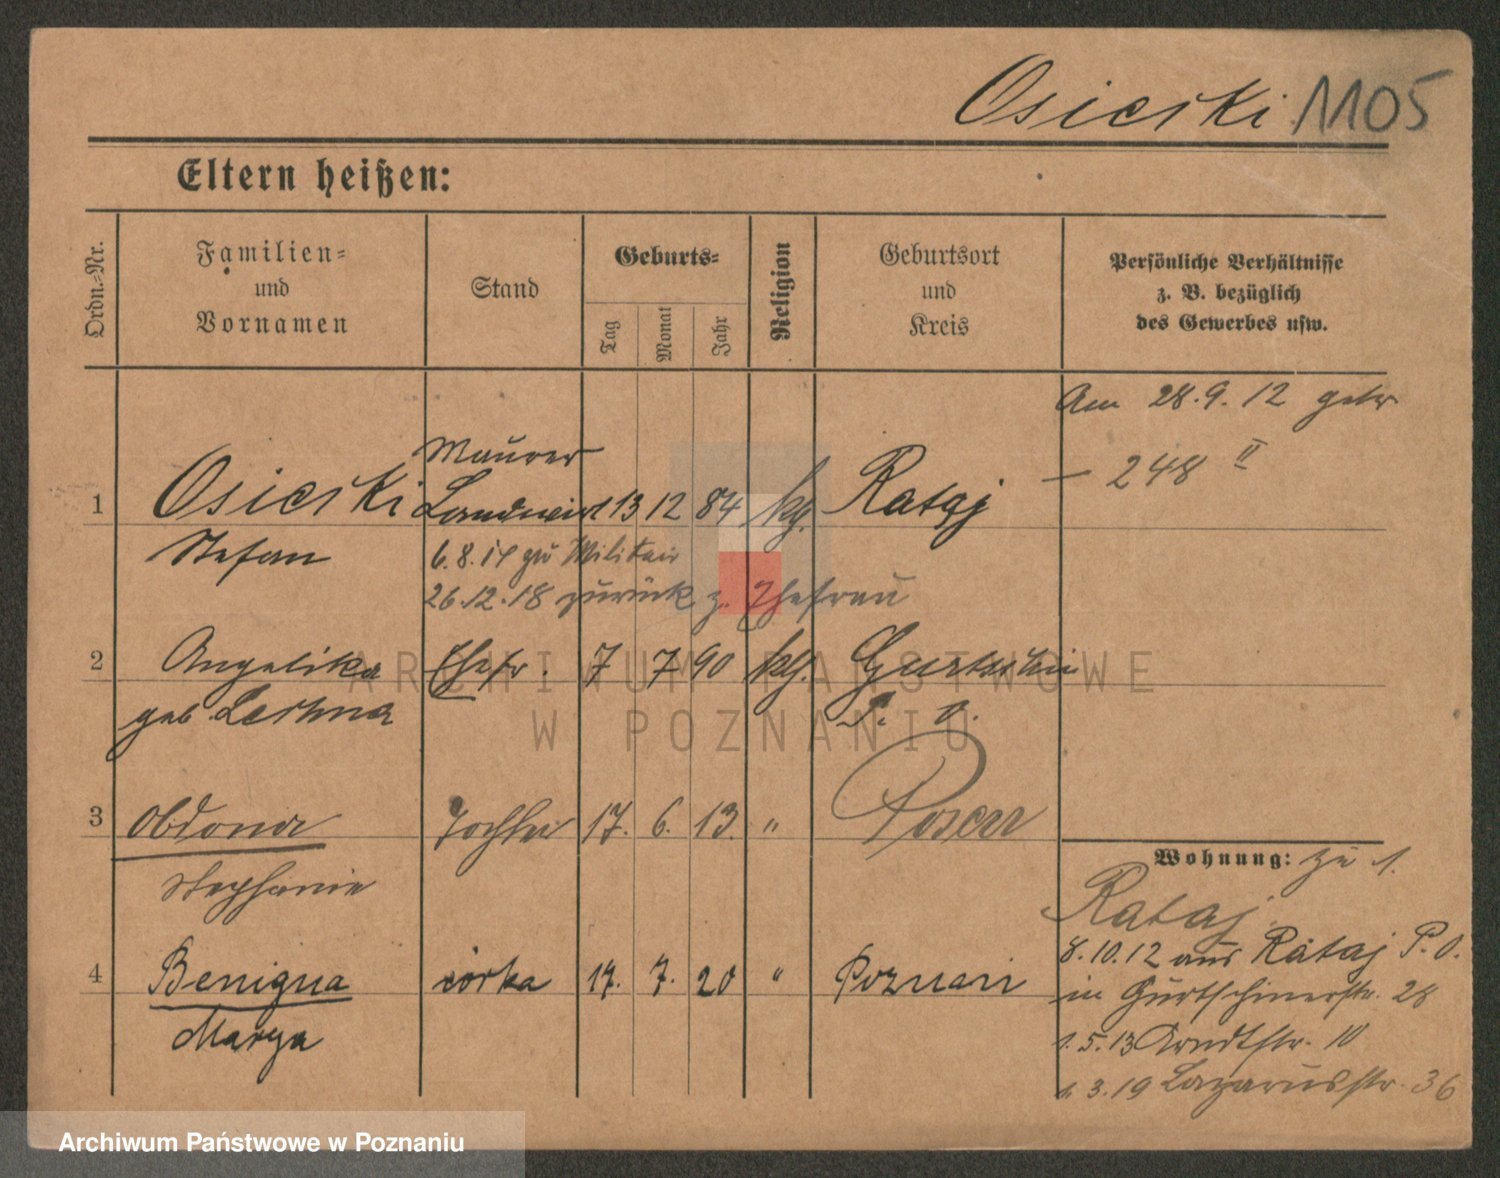 Osieski 1105
Eltern heißen:
Ordn.-Nr.
Familien-
und
Vornamen
Stand
Geburts-
Tag
Monat
Jahr
Religion
Geburtsort
und
Kreis
Persönliche Verhältnisse
z. B. bezüglich
des Gewerbes usw.
Am 28.9.12 getr
– 248 II
Maurer
1 Osieski Landwirt 13 12 84 kg. Rataj
Stefan
6.8.14 zu Militair
26.12.18 zurück z. Ehefrau
2 Angelika Ehefr. 7 7 90 kg.
geb. P. O.
3 Abdona Tochter 17. 6. 13. " Posen
Stephanie
4 Benigna córka 17. 7. 20 " Poznań
Marya
Wohnung: zu 1.
Rataj
8.10.12 aus Rataj P. O.
in Gurtschinerstr. 28
1.5.13 Arndtstr. 10
1.3.19 Lazarusstr. 36
ARCHIWUM PAŃSTWOWE
W POZNANIU
Archiwum Państwowe w Poznaniu